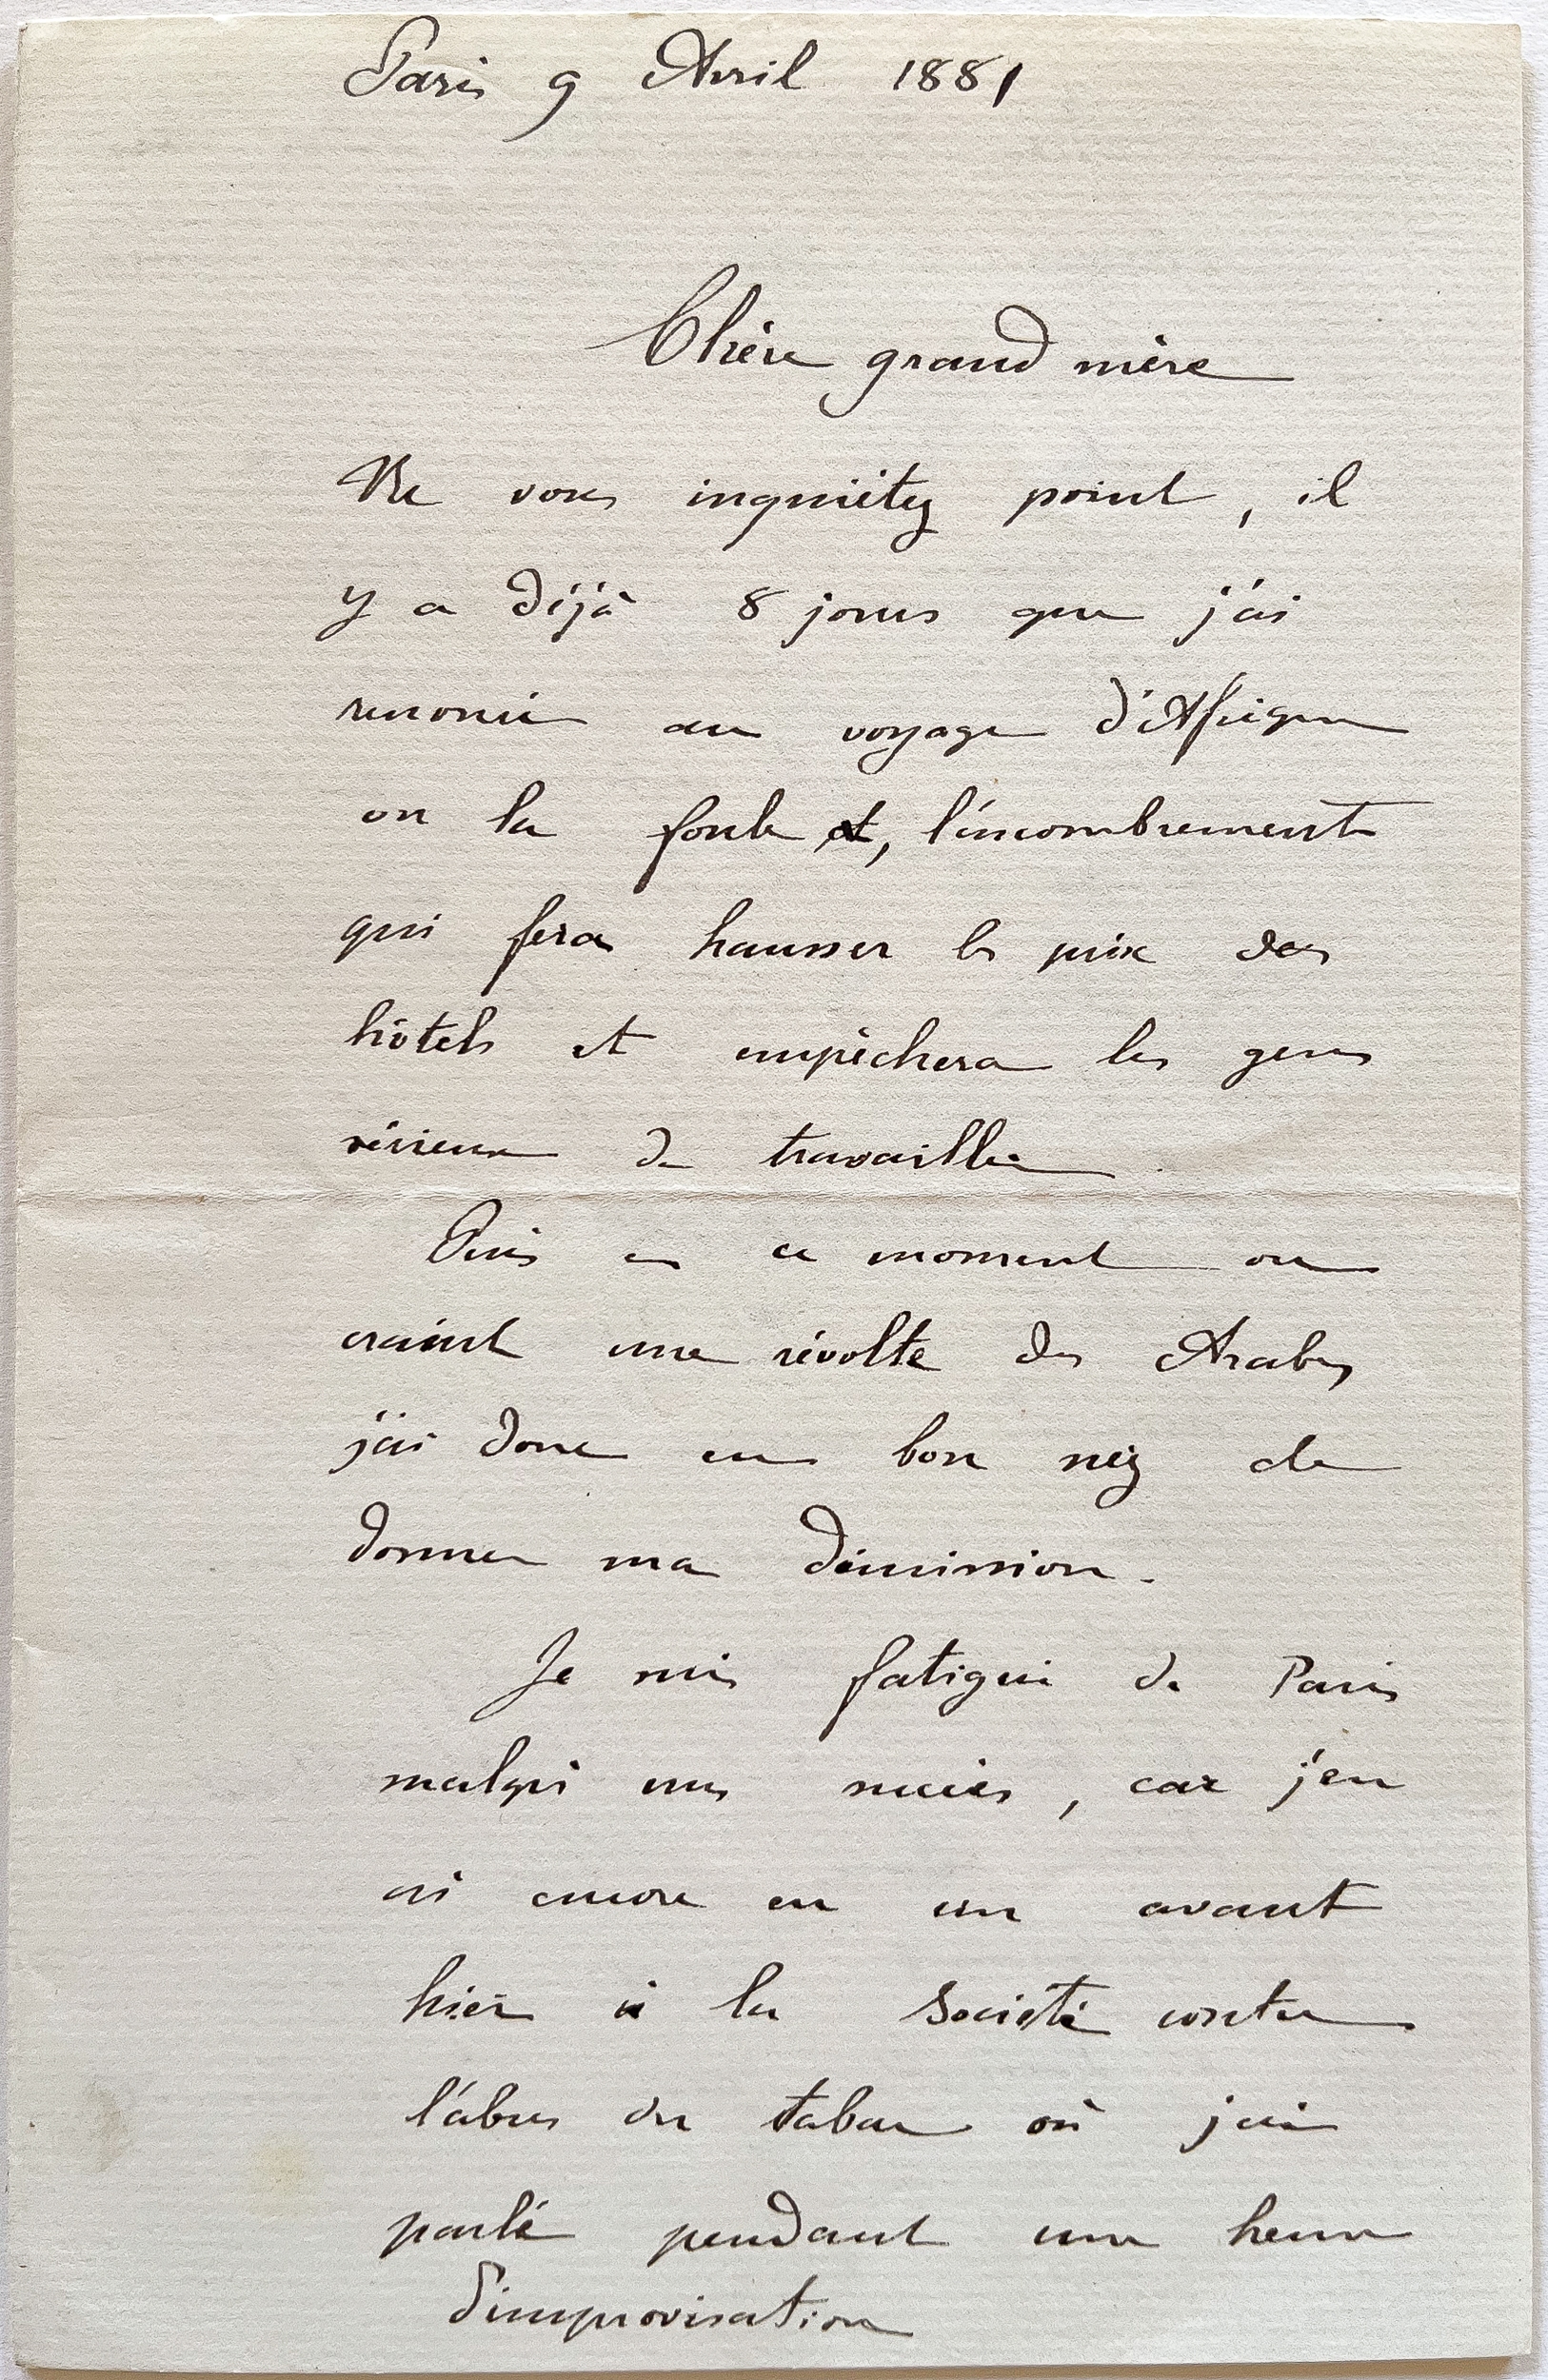 Paris 9 Avril 1881
Chère grand mère
Ne vous inquiétez point, il
y a déjà 8 jours que j'ai
renoncé au voyage d'Afrique
ou la foule et, l'encombrement
qui fera hausser les prix des
hôtels et empêchera les gens
sérieux de travailler
Puis en ce moment on
craint une révolte des Arabes
j'ai donc eu bon nez de
donner ma démission.
Je suis fatigué de Paris
malgré mes succès, car j'en
ai encore eu un avant
hier à la Société contre
l'abus du tabac où j'ai
parlé pendant une heure
d'improvisation